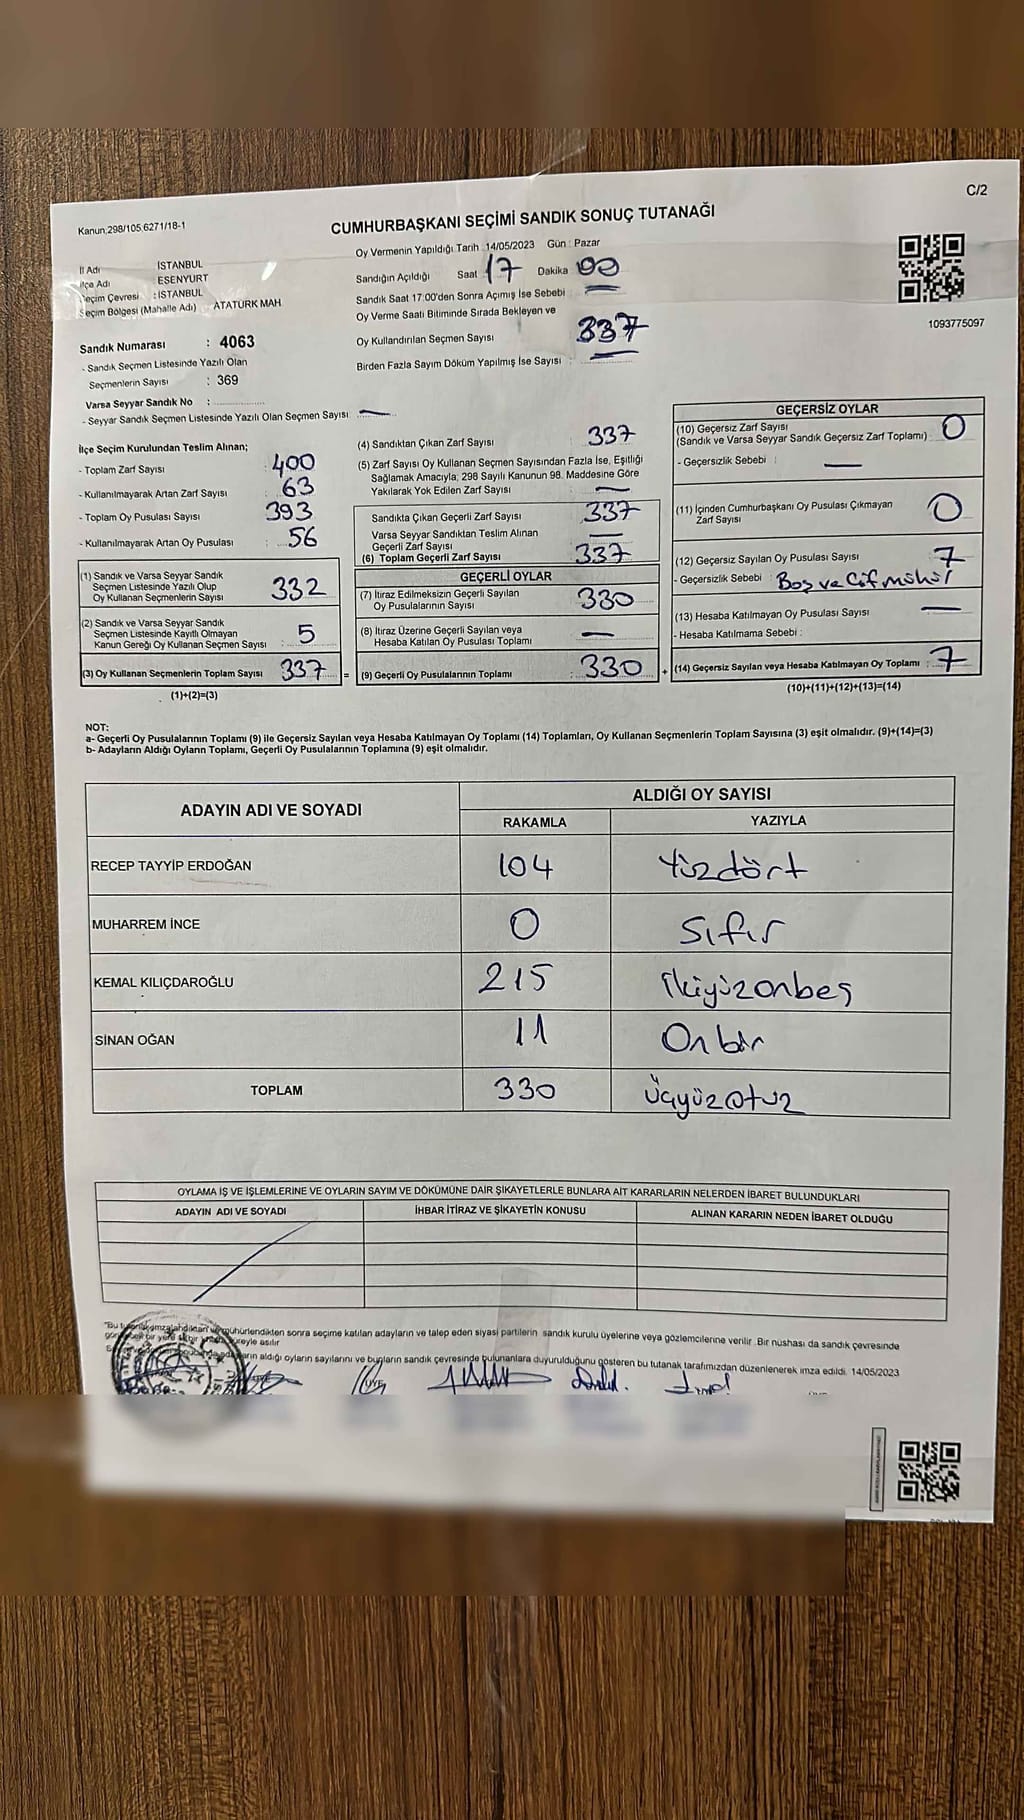 C/2
Kanun;298/105,6271/18-1
CUMHURBAŞKANI SEÇİMİ SANDIK SONUÇ TUTANAĞI
İl Adı İSTANBUL
İlçe Adı ESENYURT
Seçim Çevresi : İSTANBUL
Seçim Bölgesi (Mahalle Adı) ATATÜRK MAH
Sandık Numarası : 4063
- Sandık Seçmen Listesinde Yazılı Olan
Seçmenlerin Sayısı : 369
Varsa Seyyar Sandık No :
- Seyyar Sandık Seçmen Listesinde Yazılı Olan Seçmen Sayısı : —
Oy Vermenin Yapıldığı Tarih :14/05/2023 Gün : Pazar
Sandığın Açıldığı Saat 17 Dakika 00
Sandık Saat 17:00'den Sonra Açımış İse Sebebi : —
Oy Verme Saati Bitiminde Sırada Bekleyen ve
Oy Kullandırılan Seçmen Sayısı 337
Birden Fazla Sayım Döküm Yapılmış İse Sayısı : —
1093775097
İlçe Seçim Kurulundan Teslim Alınan;
- Toplam Zarf Sayısı : 400
- Kullanılmayarak Artan Zarf Sayısı : 63
- Toplam Oy Pusulası Sayısı : 393
- Kullanılmayarak Artan Oy Pusulası : 56
(1) Sandık ve Varsa Seyyar Sandık
Seçmen Listesinde Yazılı Olup
Oy Kullanan Seçmenlerin Sayısı : 332
(2) Sandık ve Varsa Seyyar Sandık
Seçmen Listesinde Kayıtlı Olmayan
Kanun Gereği Oy Kullanan Seçmen Sayısı : 5
(3) Oy Kullanan Seçmenlerin Toplam Sayısı : 337
(1)+(2)=(3)
(4) Sandıktan Çıkan Zarf Sayısı : 337
(5) Zarf Sayısı Oy Kullanan Seçmen Sayısından Fazla İse, Eşitliği
Sağlamak Amacıyla; 298 Sayılı Kanunun 98. Maddesine Göre
Yakılarak Yok Edilen Zarf Sayısı : —
Sandıkta Çıkan Geçerli Zarf Sayısı : 337
Varsa Seyyar Sandıktan Teslim Alınan
Geçerli Zarf Sayısı : —
(6) Toplam Geçerli Zarf Sayısı : 337
GEÇERLİ OYLAR
(7) İtiraz Edilmeksizin Geçerli Sayılan
Oy Pusulalarının Sayısı : 330
(8) İtiraz Üzerine Geçerli Sayılan veya
Hesaba Katılan Oy Pusulası Toplamı : —
= (9) Geçerli Oy Pusulalarının Toplamı : 330 +
GEÇERSİZ OYLAR
(10) Geçersiz Zarf Sayısı
(Sandık ve Varsa Seyyar Sandık Geçersiz Zarf Toplamı) : 0
- Geçersizlik Sebebi : —
(11) İçinden Cumhurbaşkanı Oy Pusulası Çıkmayan
Zarf Sayısı : 0
(12) Geçersiz Sayılan Oy Pusulası Sayısı : 7
- Geçersizlik Sebebi : Boş ve Çift mühür
(13) Hesaba Katılmayan Oy Pusulası Sayısı : —
- Hesaba Katılmama Sebebi :
(14) Geçersiz Sayılan veya Hesaba Katılmayan Oy Toplamı : 7
(10)+(11)+(12)+(13)=(14)
NOT:
a- Geçerli Oy Pusulalarının Toplamı (9) ile Geçersiz Sayılan veya Hesaba Katılmayan Oy Toplamı (14) Toplamları, Oy Kullanan Seçmenlerin Toplam Sayısına (3) eşit olmalıdır. (9)+(14)=(3)
b- Adayların Aldığı Oyların Toplamı, Geçerli Oy Pusulalarının Toplamına (9) eşit olmalıdır.
ADAYIN ADI VE SOYADI ALDIĞI OY SAYISI
RAKAMLA YAZIYLA
RECEP TAYYİP ERDOĞAN 104 Yüzdört
MUHARREM İNCE 0 Sıfır
KEMAL KILIÇDAROĞLU 215 ikiyüzonbeş
SİNAN OĞAN 11 Onbir
TOPLAM 330 Üçyüzotuz
OYLAMA İŞ VE İŞLEMLERİNE VE OYLARIN SAYIM VE DÖKÜMÜNE DAİR ŞİKAYETLERLE BUNLARA AİT KARARLARIN NELERDEN İBARET BULUNDUKLARI
ADAYIN ADI VE SOYADI İHBAR İTİRAZ VE ŞİKAYETİN KONUSU ALINAN KARARIN NEDEN İBARET OLDUĞU
"Bu mühürlendikten sonra seçime katılan adayların ve talep eden siyasi partilerin sandık kurulu üyelerine veya gözlemcilerine verilir .Bir nüshası da sandık çevresinde
bir süreyle asılır
aldığı oyların sayılarını ve bunların sandık çevresinde bulunanlara duyurulduğunu gösteren bu tutanak tarafımızdan düzenlenerek imza edildi. 14/05/2023
ÜYE